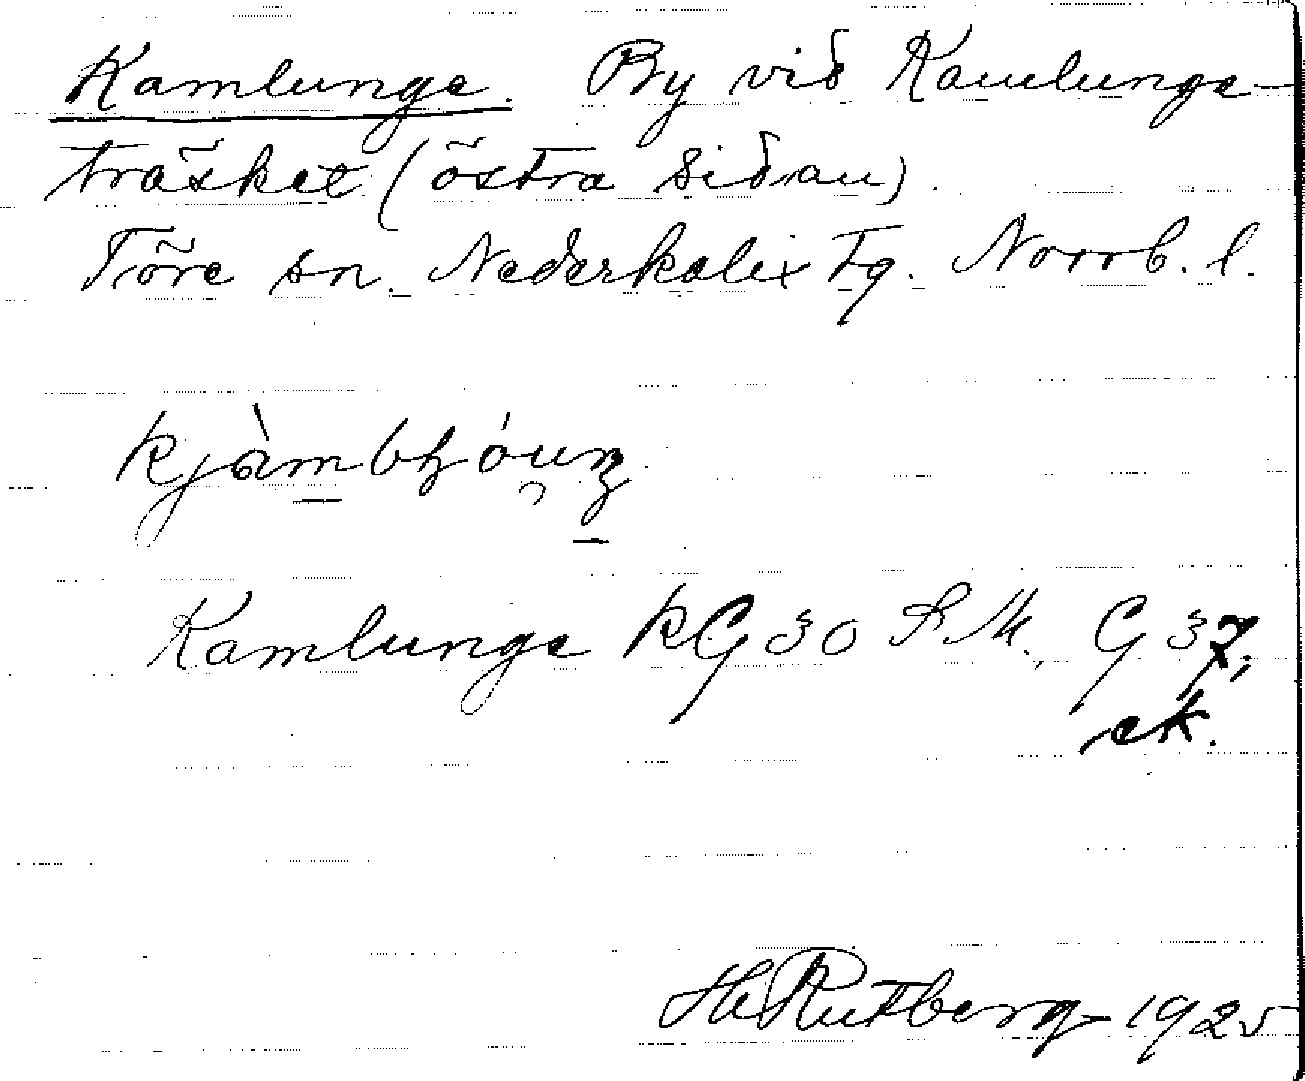 Kamlunge. By vid Kamlunge-
träsket (östra sidan).
Töre sn. Nederkalix tg. Norrb. l.
Kamlunge KG 30 S.M., G 37,
ek.
H Rutberg 1925